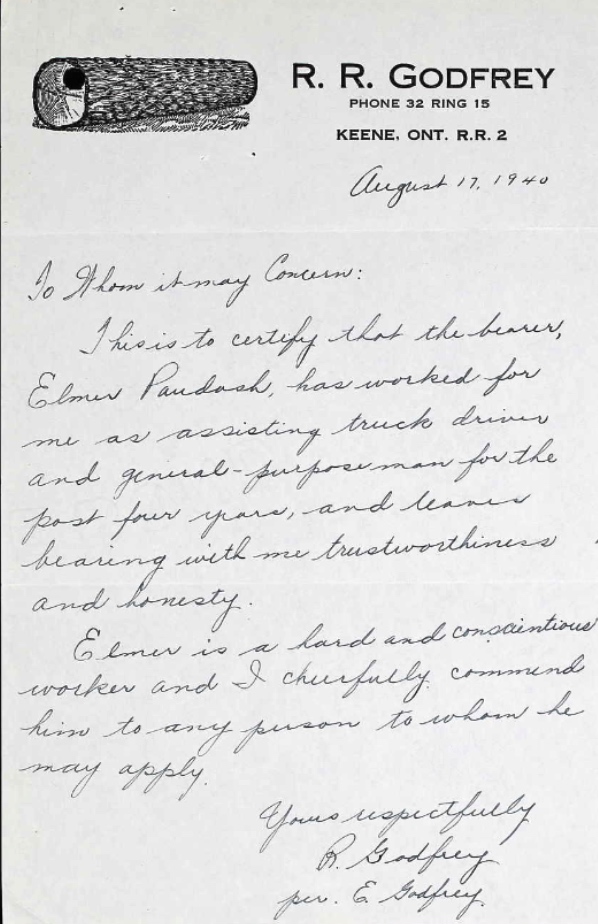 R. R. GODFREY
PHONE 32 RING 15
KEENE, ONT. R.R. 2
August 17, 1940
To Whom it may Concern:
This is to certify that the bearer,
Elmer Paudash, has worked for
me as assisting truck driver
and general-purpose man for the
past four years, and leaves
bearing with me trustworthiness
and honesty.
Elmer is a hard and conscientious
worker and I cheerfully commend
him to any person to whom he
may apply.
Yours respectfully
R. Godfrey
per. E. Godfrey.